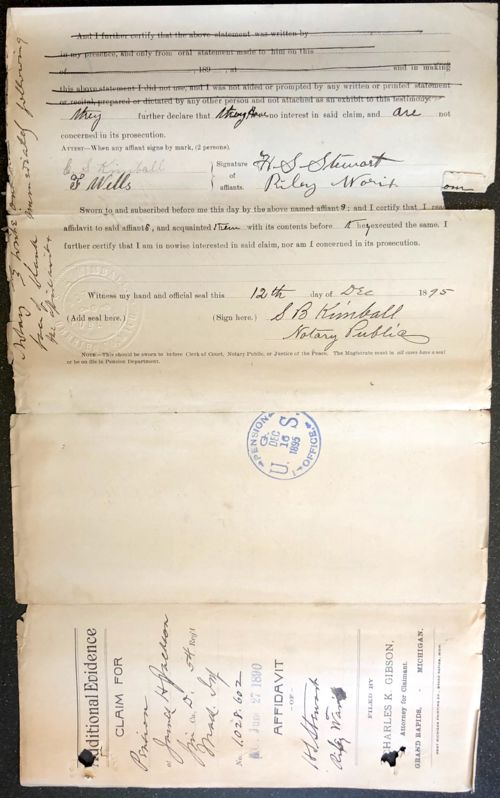 And I further certify that the above statement was written by
in my presence, and only from oral statement made to him on this
of , 189 , at and in making
this above statement I did not use, and I was not aided or prompted by any written or printed statement
or recital, prepared or dictated by any other person and not attached as an exhibit to this testimony.
they further declare that they have no interest in said claim, and are not
concerned in its prosecution.
ATTEST—When any affiant signs by mark, (2 persons).
E S Kimball
F Wills
Signature
of
affiants.
H. S Stewart
Riley
Sworn to and subscribed before me this day by the above named affiants; and I certify that I read
affidavit to said affiants, and acquainted them with its contents before they executed the same. I
further certify that I am in nowise interested in said claim, nor am I concerned in its prosecution.
Witness my hand and official seal this 12th day of Dec 1895
(Add seal here.) (Sign here.) S B Kimball
Notary Public
NOTE—This should be sworn to before Clerk of Court, Notary Public, or Justice of the Peace. The Magistrate must in all cases have a seal
or be on file in Pension Department.
U. S.
PENSION OFFICE
DEC
16
1895
Additional Evidence
CLAIM FOR
Pension
of James H Jackson
Co. D, 54 Reg't
Mass. Inf
No. 1.028.602
Act June 27 1890
AFFIDAVIT
—OF—
H S Stewart
Riley
FILED BY
CHARLES K. GIBSON,
Attorney for Claimant.
GRAND RAPIDS, - MICHIGAN.